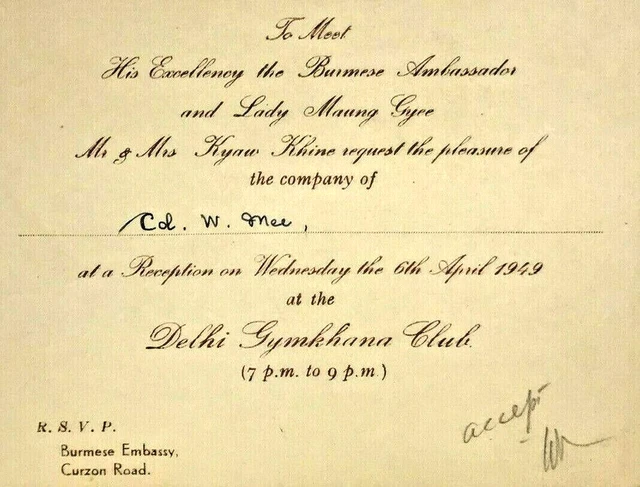 To Meet
His Excellency the Burmese Ambassador
and Lady Maung Gyee
Mr & Mrs Kyaw Khine request the pleasure of
the company of
Col. W. Mee,
at a Reception on Wednesday the 6th April 1949
at the
Delhi Gymkhana Club
(7 p.m. to 9 p.m)
accept
R. S. V. P.
Burmese Embassy,
Curzon Road.